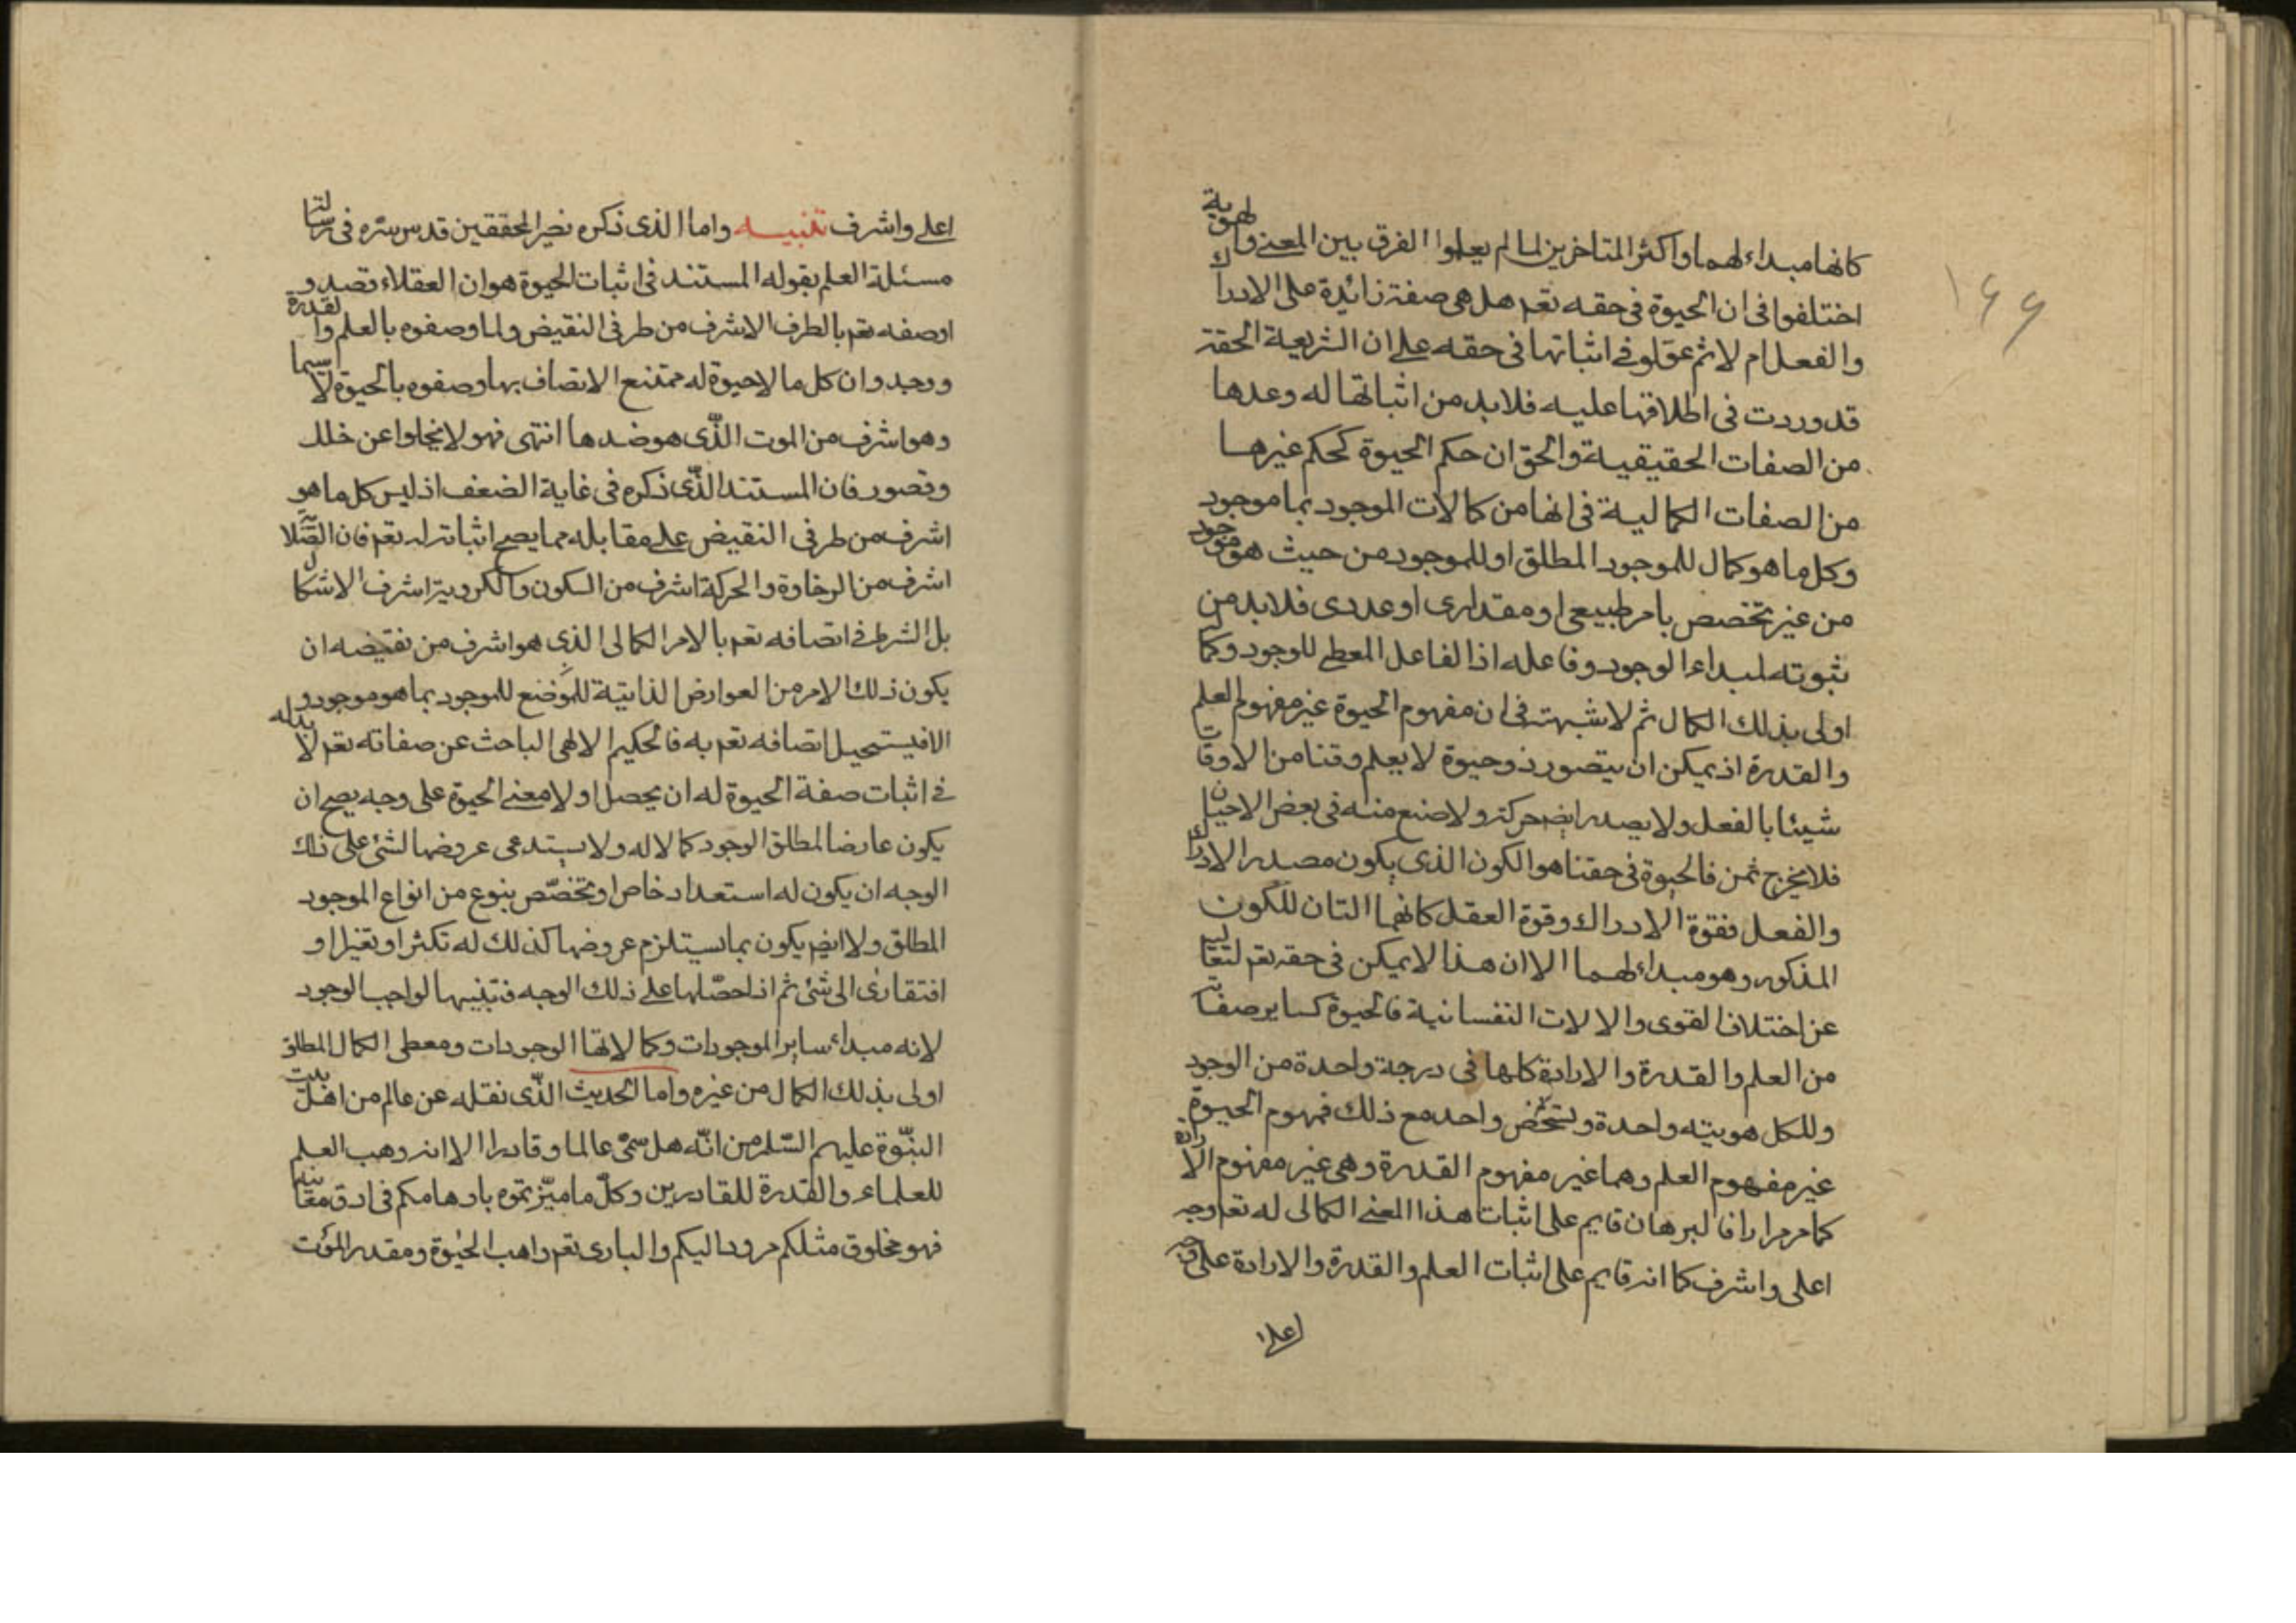 كانها مبداء لهما واكثر المتاخرين لما لم يعلموا الفرق بين المعنى والهوية
اختلفوا فى ان الحيوة فى حقه تعم هل هى صفة زائدة على الادراك
والفعل ام لا ثم عوّلو فى اثباتها فى حقه على ان الشريعة الحقة
قد وردت فى اطلاقها عليه فلا بد من اثباتها له وعدها
من الصفات الحقيقية والحق ان حكم الحيوة كحكم غيرها
من الصفات الكمالية فى انها من كمالات الموجود بما موجود
وكل ما هو كمال للموجود المطلق او للموجود من حيث هو موجود
من غير تخصص بامر طبيعى او مقدارى او عددى فلا بد من
ثبوته لمبداء الوجود وفاعله اذ الفاعل المعطى للوجود وكماله
اولى بذلك الكمال ثم لا شبهة فى ان مفهوم الحيوة غير مفهوم العلم
والقدرة اذ يمكن ان يتصور ذو حيوة لا يعلم وقتا من الاوقات
شيئا بالفعل ولا يصدر ايضم حركة ولا صنع منه فى بعض الاحيان
فلا يخرج ثمن فالحيوة فى حقنا هو الكون الذى يكون مصدر الادراك
والفعل فقوة الادراك وقوة العقل كانهما التان للكون
المذكور وهو مبداء لهما الا ان هذا لا يمكن فى حقه تعم لتعاليه
عن اختلاف القوى والالات النفسانية فالحيوة كساير صفاته
من العلم والقدرة والارادة كلها فى درجة واحدة من الوجود
وللكل هويته واحدة وتشخص واحد مع ذلك فمهوم الحيوة
غير مفهوم العلم وهما غير مفهوم القدرة وهى غير مفهوم الارادة
كما مر مرارا فالبرهان قايم على اثبات هذا المعنى الكمالى له تعم وجه
اعلى واشرف كما انه قايم على اثبات العلم والقدرة والارادة على وجه
اعلى
١٦٦
اعلى واشرف تنبيه واما الذى ذكره نصير المحققين قدس سره فى رسالة
مسئلة العلم بقوله المستند فى اثبات الحيوة هو ان العقلاء قصدو
اوصفه تعم بالطرف الاشرف من طرفى النقيض ولما وصفوه بالعلم والقدرة
ووجدوا ان كل ما لا حيوة له ممتنع الاتصاف بها وصفوه بالحيوة لا سيما
وهو اشرف من الموت الذّى هو ضدها انتهى فهو لا يخلوا عن خلل
وقصور فان المستند الذّى ذكره فى غاية الضعف اذ ليس كل ما هو
اشرف من طرفى النقيض على مقابله مما يصح اثباته له تعم فان الصّلابة
اشرف من الرخاوة والحركة اشرف من السكون والكروية اشرف الاشكال
بل الشرط فى اتصافه تعم بالامر الكمالى الذى هو اشرف من نقيضه ان
يكون ذلك الامر من العوارض الذاتيّة للموضع للموجود بما هو موجود و
الا فيستحيل اتصافه تعم به فالحكيم الالهى الباحث عن صفاته تعم لا بد له
فى اثبات صفة الحيوة له ان يحصل اولا معنى الحيوة على وجه يصح ان
يكون عارضا لمطلق الوجود كمالا له ولا يستدعى عروضها لشئ على ذلك
الوجه ان يكون له استعداد خاص او تخصّص بنوع من انواع الموجود
المطلق ولا ايضم يكون بما يستلزم عروضها كذلك له تكثرا وتغيرا و
افتقارى الى شئ ثم اذا حصّلها على ذلك الوجه فتنبيها لواجب الوجود
لانه مبداء ساير الموجودات وكمالاتها الوجودات ومعطى الكمال المطلق
اولى بذلك الكمال من غيره واما الحديث الذّى نقله عن عالم من اهل بيت
النبّوة عليهم السّلم من انّه هل سمّى عالما وقادرا الا انه وهب العلم
للعلماء والقدرة للقادرين وكلّ ما ميّزتموه باوهامكم فى ادق معانيه
فهو مخلوق مثلكم مردود اليكم والبارى تعم واهب الحيوة ومقدر الموت